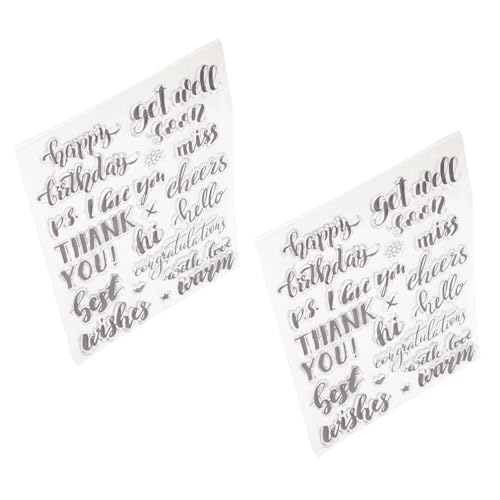 happy
birthday
get well
soon
miss
p.s. I love you
cheers
THANK
YOU!
hi
hello
congratulations
with love
best
wishes
warm
happy
birthday
get well
soon
miss
p.s. I love you
cheers
THANK
YOU!
hi
hello
congratulations
with love
best
wishes
warm